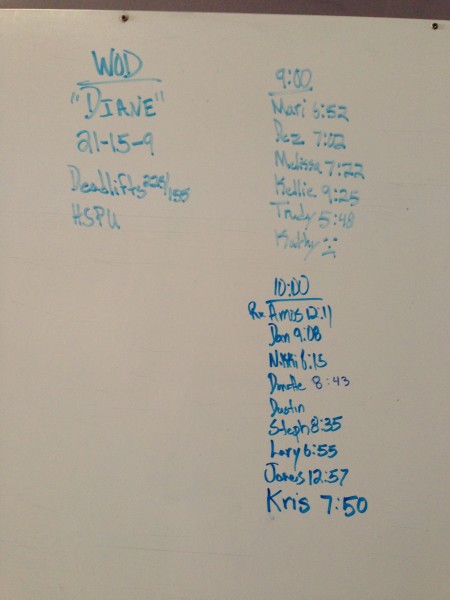 WOD
"DIANE"
21-15-9
Deadlifts 225/155
HSPU
9:00
Mari 6:52
Dez 7:02
Melissa 7:22
Kellie 9:25
Trudy 5:48
Kathy
10:00
Rx Amos 12:11
Dan 9:08
Nikki 6:15
8:43
Dustin
Steph 8:35
Lary 6:55
Jones 12:57
Kris 7:50